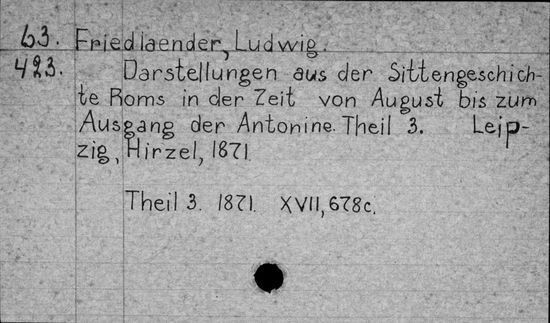 63. Friedlaender, Ludwig.
423. Darstellungen aus der Sittengeschich-
te Roms in der Zeit von August bis zum
Ausgang der Antonine. Theil 3. Leip-
zig, Hirzel, 1871.
Theil 3. 1871. XVII, 678c.